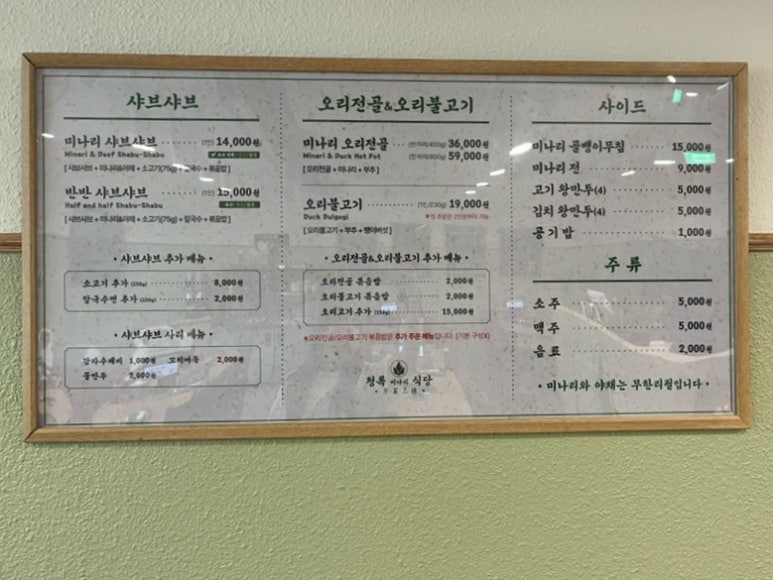 샤브샤브
미나리 샤브샤브 (1인) 14,000원
Minari & Beef Shabu-Shabu
[샤브샤브 + 미나리&야채 + 소고기(75g) + 칼국수 + 볶음밥]
반반 샤브샤브 (1인) 15,000원
Half and half Shabu-Shabu
[샤브샤브 + 미나리&야채 + 소고기(75g) + 칼국수 + 볶음밥]
• 샤브샤브 추가 메뉴 •
소고기 추가 (150g) 8,000원
칼국수면 추가 (150g) 2,000원
• 샤브샤브 사리 메뉴 •
감자수제비 1,000원 꼬치어묵 2,000원
물만두 2,000원
오리전골&오리불고기
미나리 오리전골 (반마리/400g) 36,000원
Minari & Duck Hot Pot (한마리/800g) 59,000원
[오리전골 + 미나리 + 부추]
오리불고기 (1인/230g) 19,000원
Duck Bulgogi ※첫 주문은 2인분부터 가능
[오리불고기 + 부추 + 팽이버섯]
• 오리전골&오리불고기 추가 메뉴 •
오리전골 볶음밥 2,000원
오리불고기 볶음밥 2,000원
오리고기 추가 15,000원
※오리전골/오리불고기 볶음밥은 추가 주문 메뉴입니다. (기본 구성X)
청록 미나리 식당
사이드
미나리 골뱅이무침 15,000원
미나리 전 9,000원
고기 왕만두(4) 5,000원
김치 왕만두(4) 5,000원
공기밥 1,000원
주류
소주 5,000원
맥주 5,000원
음료 2,000원
• 미나리와 야채는 무한리필입니다 •